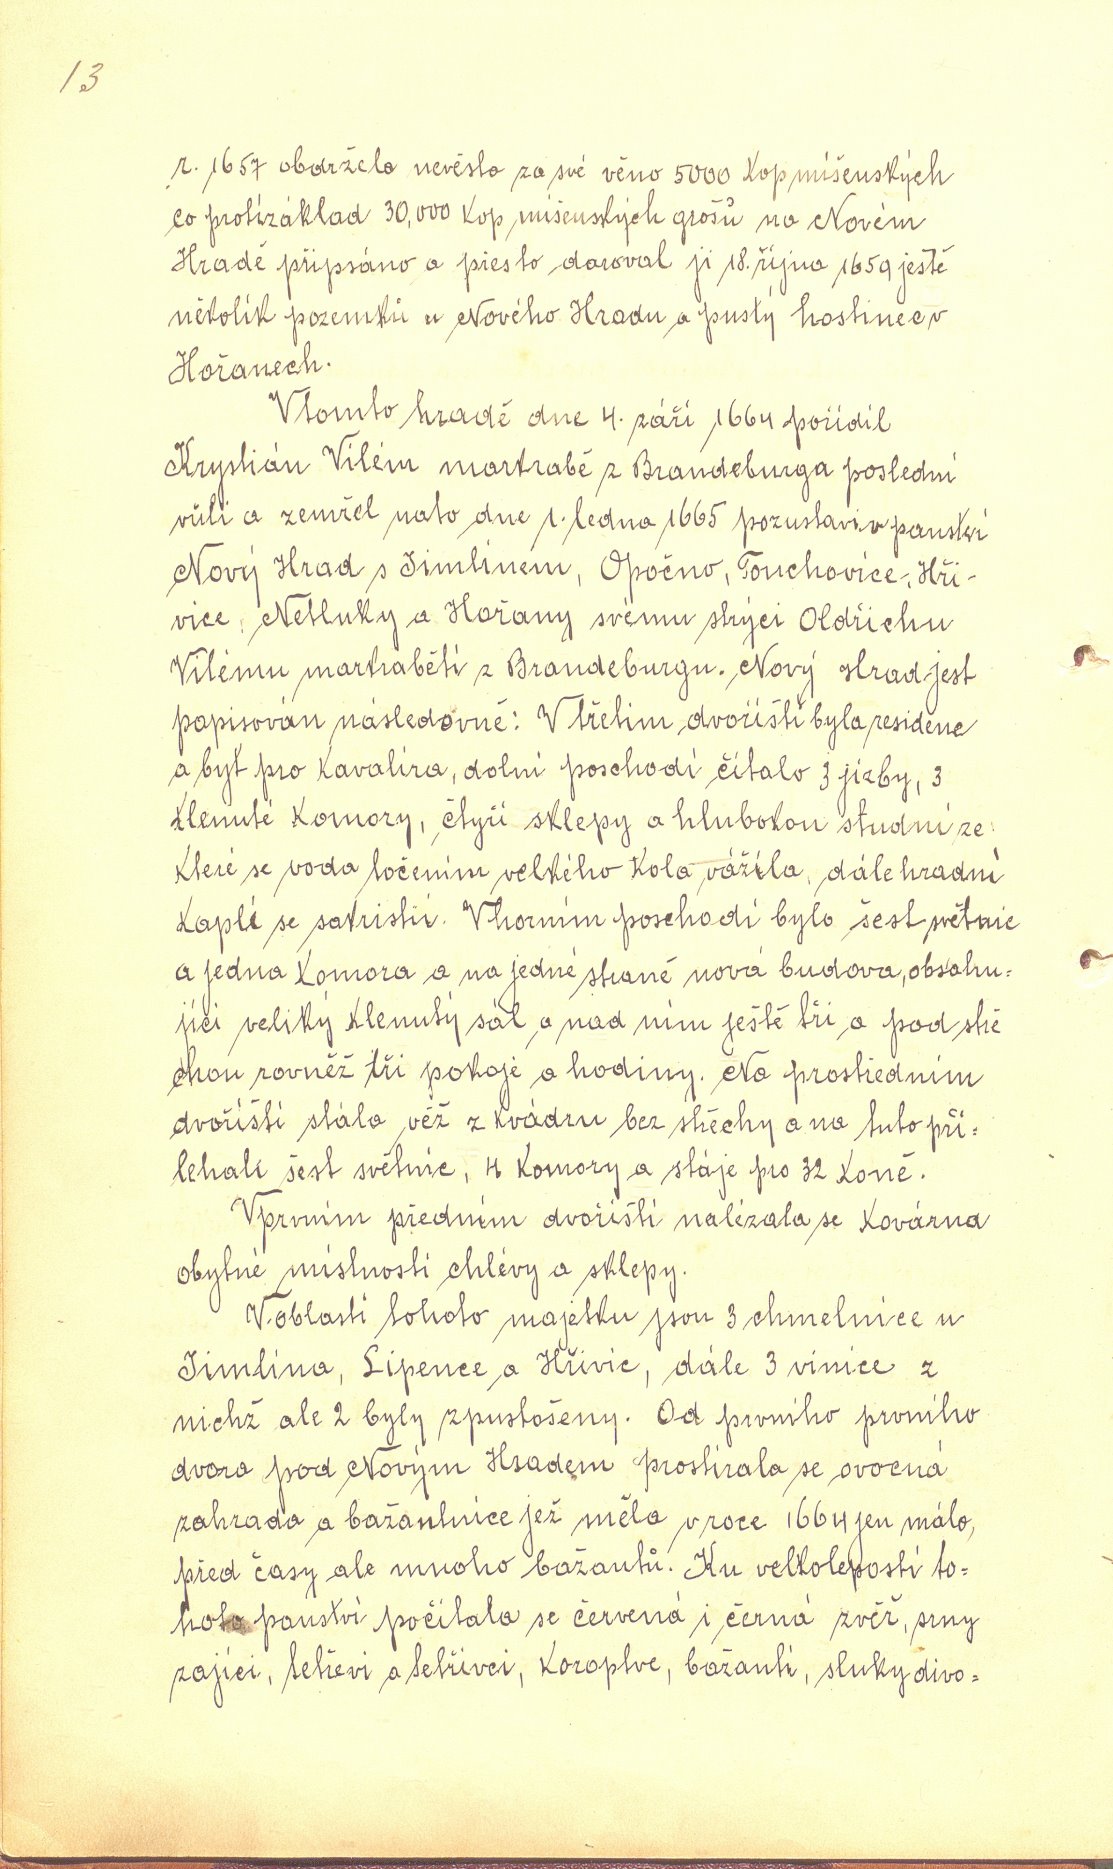 13
r. 1657 obdržela nevěsta za své věno 5000 kop míšenských
co protizáklad 30,000 kop míšenských grošů na Novém
Hradě připsáno a přesto daroval ji 18. října 1659 ještě
několik pozemků u Nového Hradu a pustý hostinec v
Hořanech.
V tomto hradě dne 4. září 1664 pořídil
Krystián Vilém markrabě z Brandeburga poslední
vůli a zemřel nato dne 1. ledna 1665 pozustaviv panství
Nový Hrad s Jimlínem, Opočno, Touchovice, Hři-
vice, Netluky a Hořany svému strýci Oldřichu
Vilému markraběti z Brandeburgu. Nový Hrad jest
popisován následovně: V třetím dvořišti byla residenc
a byt pro kavalíra, dolní poschodí čítalo 3 jizby, 3
klenuté komory, čtyři sklepy a hlubokou studni ze
které se voda točením velkého kola vážila, dále hradní
kapli se sakristií. V horním poschodí bylo šest světnic
a jedna komora a na jedné straně nová budova, obsahu=
jící veliký klenutý sál a nad ním ještě tři a pod stře
chou rovněž tři pokoje a hodiny. Na prostředním
dvořišti stála věž z kvádru bez střechy a na tuto při=
lehali šest světnic, 4 komory a stáje pro 32 koně.
V prvním předním dvořišti nalézala se kovárna
obytné místnosti chlévy a sklepy.
V oblasti tohoto majetku jsou 3 chmelnice u
Jimlína, Lipence a Hřivic, dále 3 vinice z
nichž ale 2 byly zpustošeny. Od prvního prvního
dvora pod Novým Hradem prostírala se ovocná
zahrada a bažantnice jež měla v roce 1664 jen málo,
před časy ale mnoho bažantů. Ku velkoleposti to=
hoto panství počítala se červená i černá zvěř, srny
zajíci, tetřevi a tetřívci, koroptve, bažanti, sluky divo=